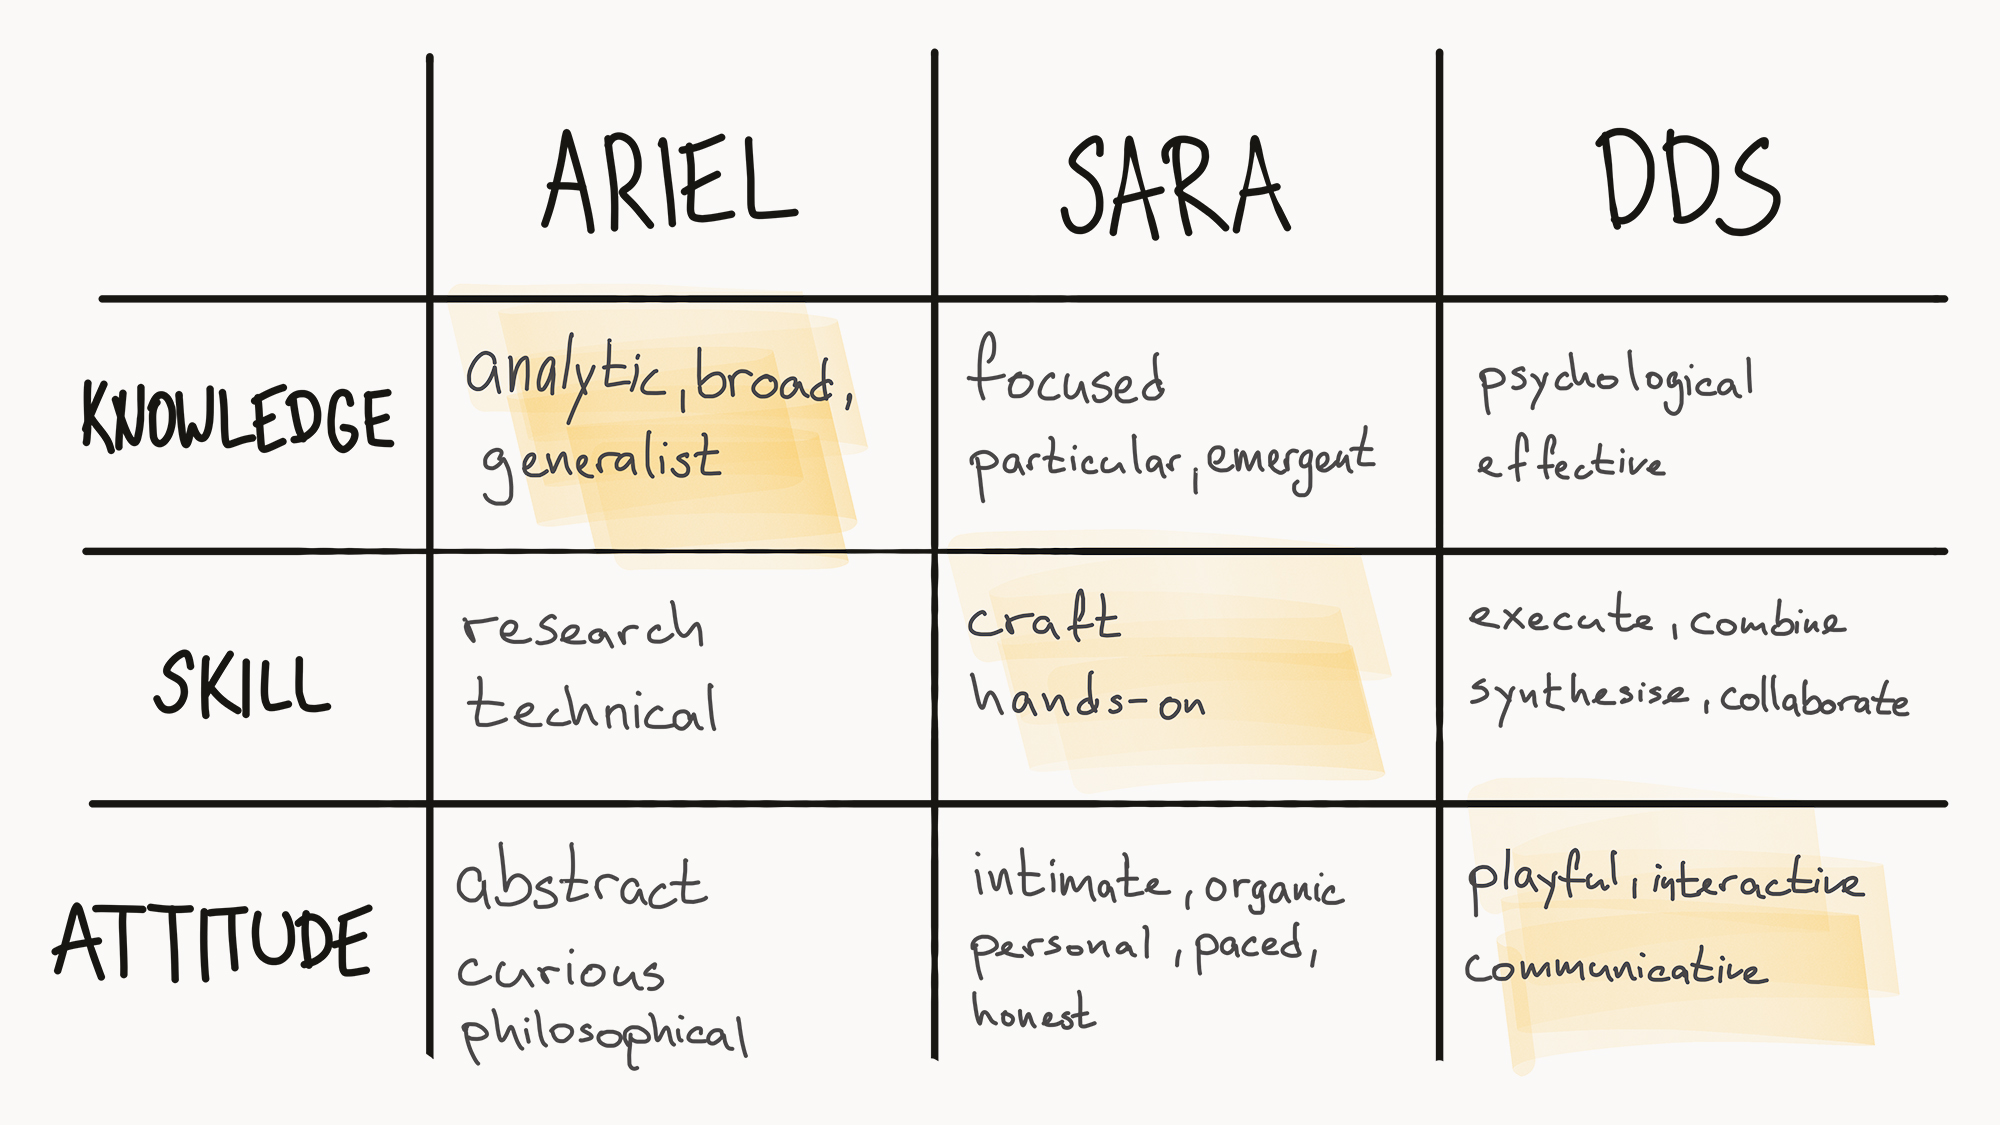 ARIEL SARA DDS
KNOWLEDGE
analytic, broad,
generalist
focused
particular, emergent
psychological
effective
SKILL
research
technical
craft
hands-on
execute, combine
synthesise, collaborate
ATTITUDE
abstract
curious
philosophical
intimate, organic
personal, paced,
honest
playful, interactive
communicative